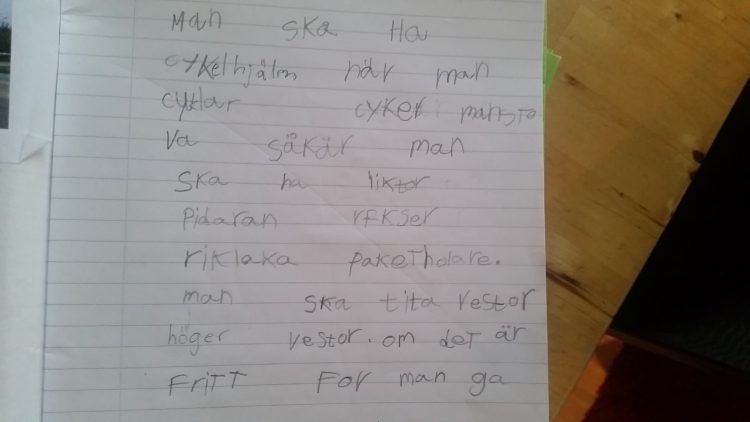 Man ska Ha
cykelhjälm när man
cyklar cyker man ska
Va säkär man
ska ha liktor
Pidaran rfkser
riklaka pakethollare.
man ska tita vestor
höger vestor. om det är
FriTT For man ga